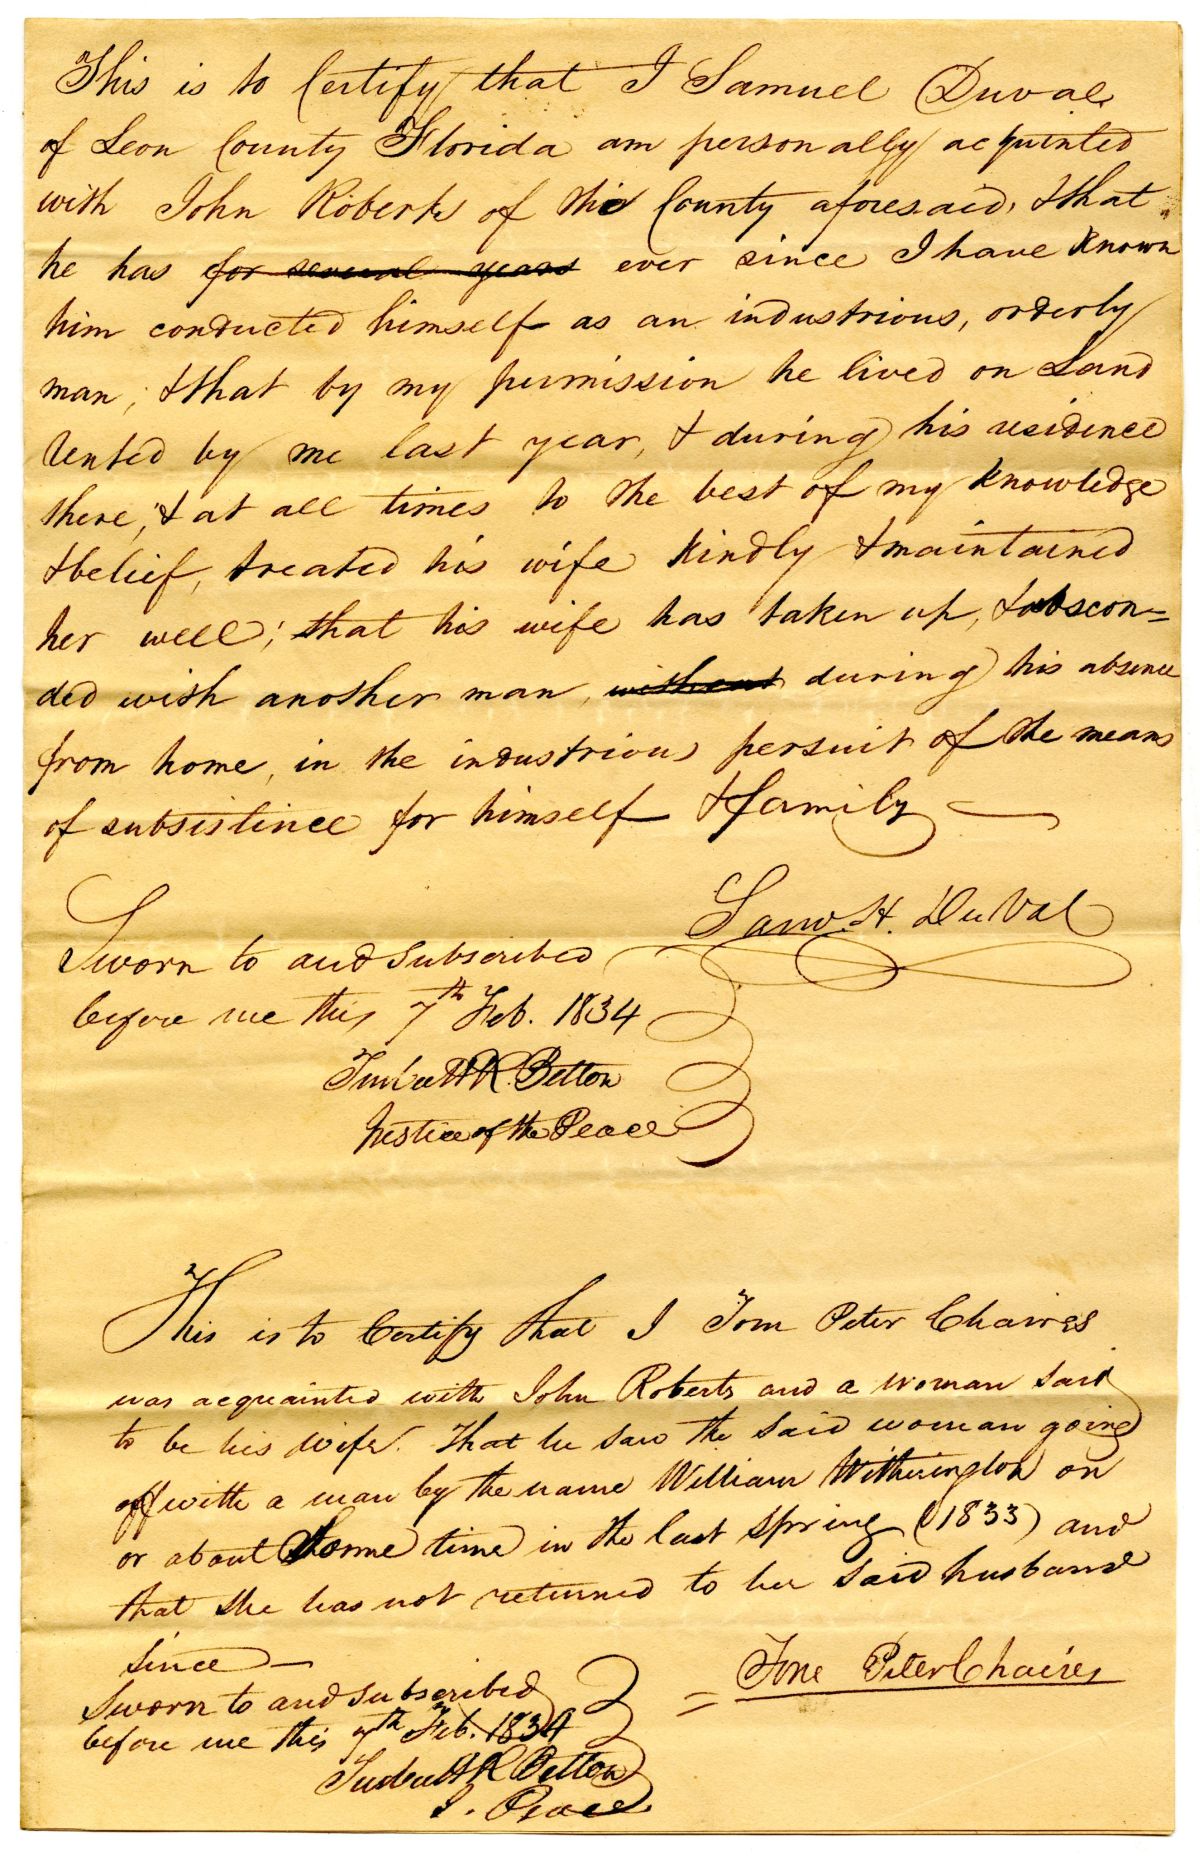 This is to Certify that I Samuel Duval
of Leon County Florida am personally acquinted
with John Roberts of the County aforesaid, & that
he has for several years ever since I have known
him conducted himself as an industrious, orderly
man; & that by my permission he lived on Land
Rented by me last year, & during his residence
there; & at all times to the best of my knowledge
& belief, treated his wife kindly & maintained
her well; that his wife has taken up, & abscon=
ded with another man, without during his absence
from home, in the industrious persuit of the means
of subsistince for himself & family
Sam. H. DuVal
Sworn to and subscribed
before me this 7th Feb. 1834
Turbutt R. Betton
Justice of the Peace
This is to Certify that I Tom Peter Chaires
was acquainted with John Roberts and a woman said
to be his wife. That he saw the said woman going
off with a man by the name William Witherington on
or about Some time in the last spring (1833) and
that she has not returned to her said husband
since
Tom Peter Chaires
Sworn to and subscribed
before me this 7th Feb. 1834
Turbutt R Betton
J. Peace